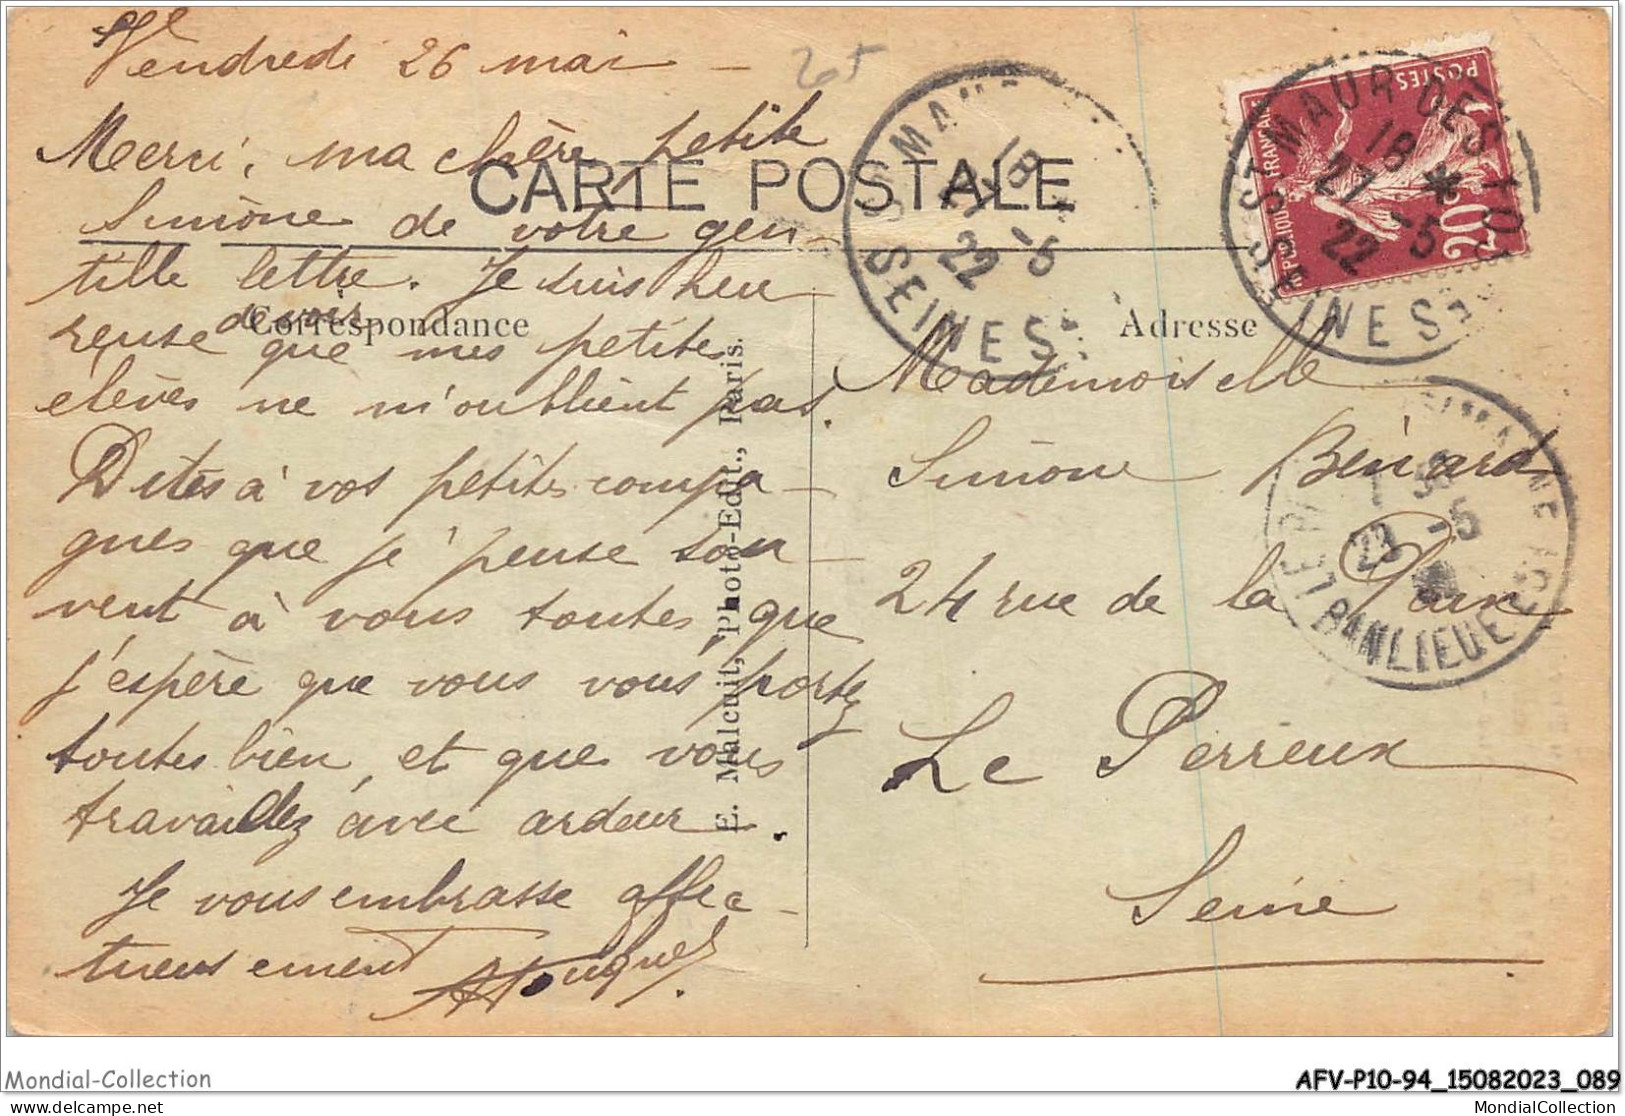 Vendredi 26 mai -
205
Merci, ma chère petite
CARTE POSTALE
Simone de votre gen-
tille lettre. Je suis heu-
Correspondance
de voir
reuse que mes petites
élèves ne m'oublient pas.
Dites à vos petites compa-
gnes que je pense sou-
vent à vous toutes, que
j'espère que vous vous portez
toutes bien, et que vous
travaillez avec ardeur.
Je vous embrasse affec-
tueusement
E. Malcuit, Photo-Edit., Paris.
Adresse
Mademoiselle
Simone Bénard
24 rue de la Paix
Le Perreux
Seine
ST MAUR
18
27 -5
22
SEINE
POSTES
20c
ST MAUR DES FOSSÉS
18 *
27 -5
22
SEINE
-5
BANLIEUE
Mondial-Collection
AFV-P10-94_15082023_089
MondialCollection.com